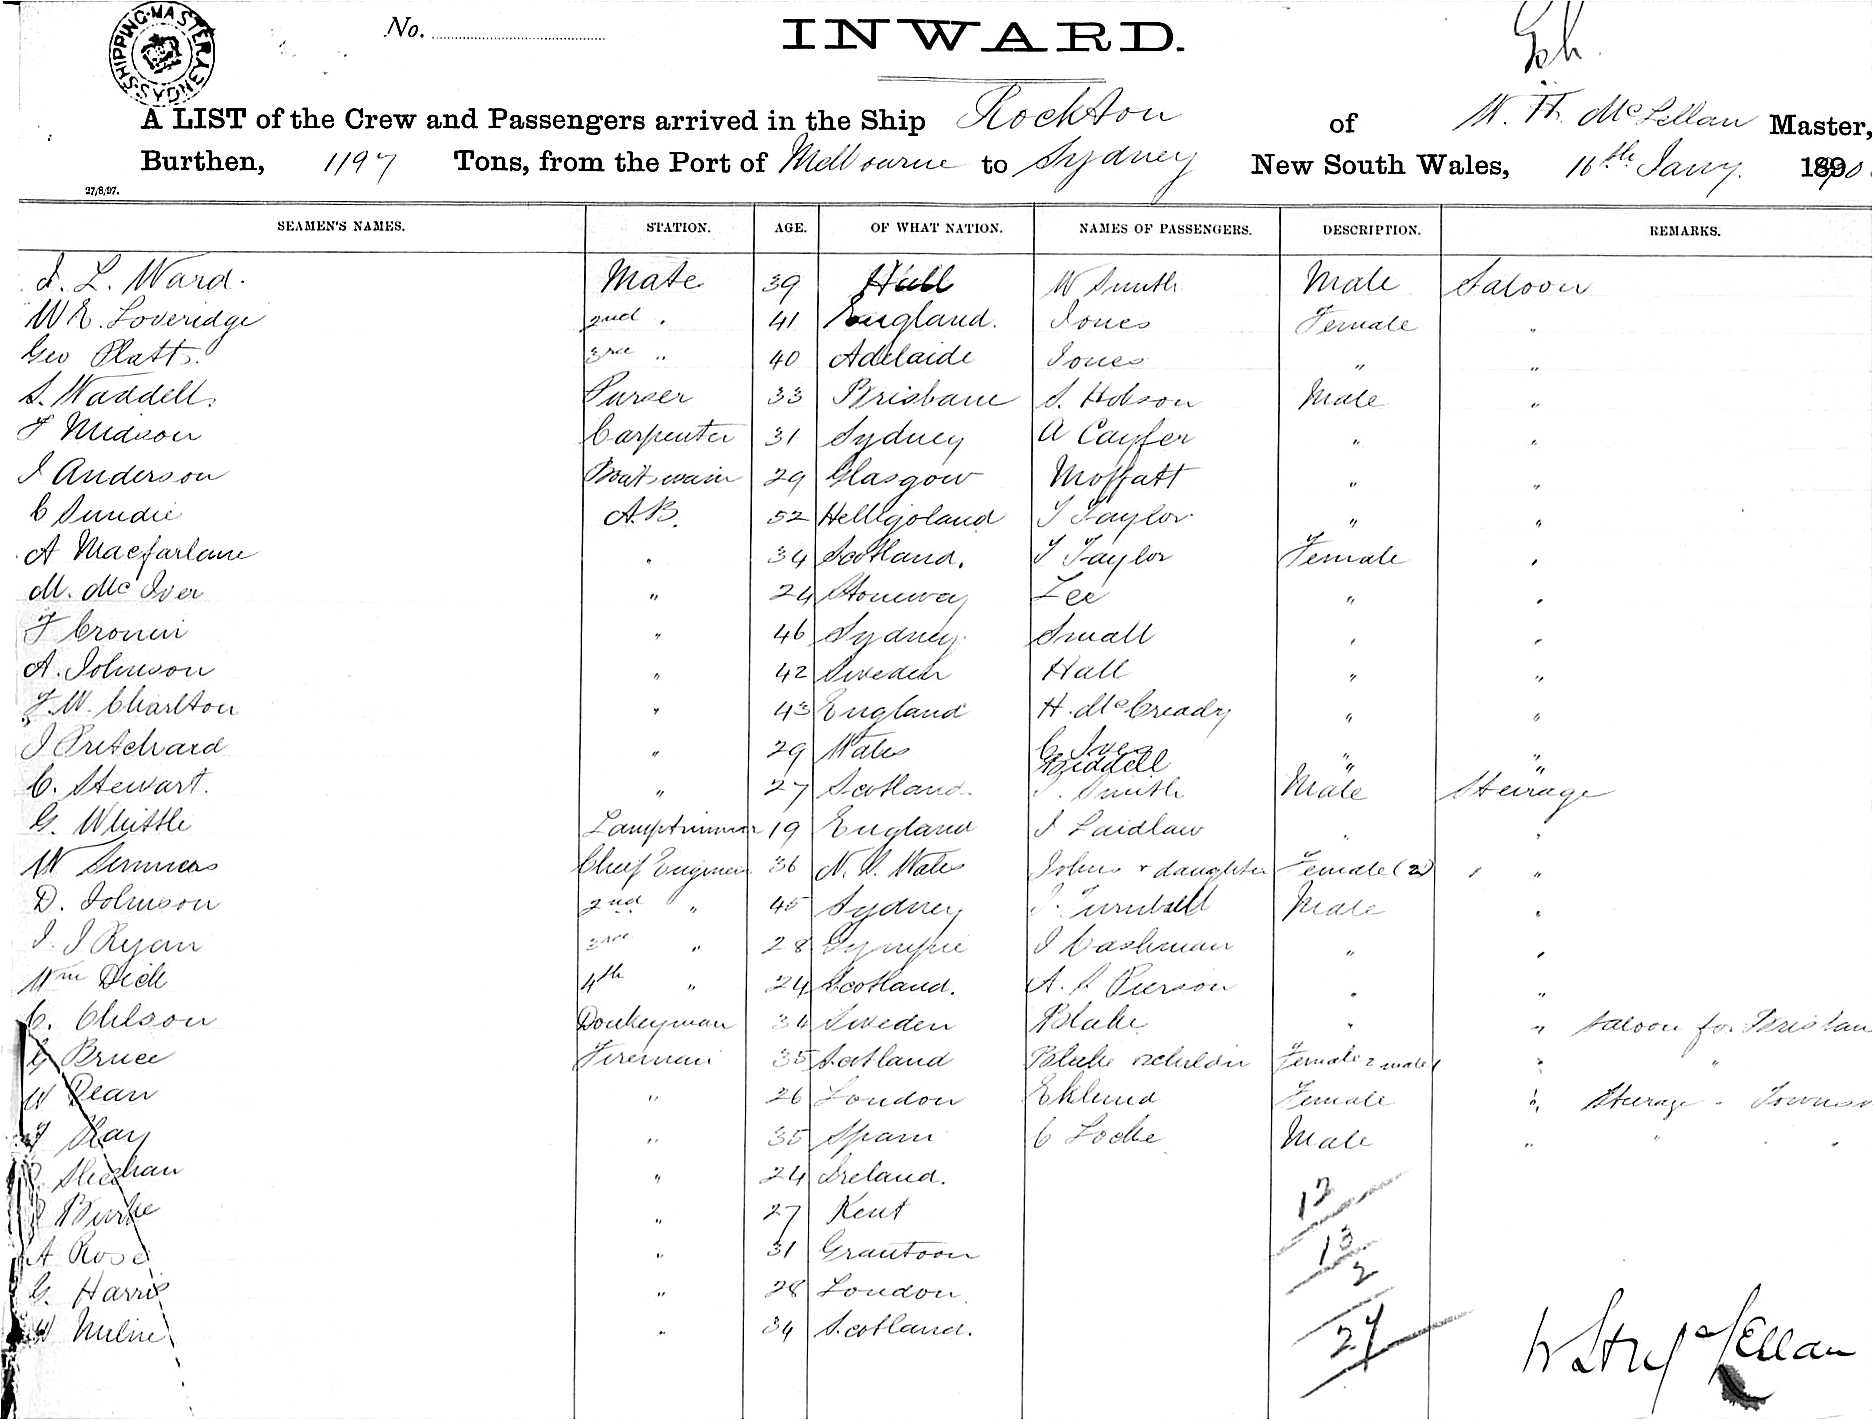 SHIPPING MASTER SYDNEY
No.
INWARD.
A LIST of the Crew and Passengers arrived in the Ship Rockton of W. H. McLellan Master,
Burthen, 1197 Tons, from the Port of Melbourne to Sydney New South Wales, 16th Jany. 1890
27/8/97.
SEAMEN'S NAMES. STATION. AGE. OF WHAT NATION. NAMES OF PASSENGERS. DESCRIPTION. REMARKS.
J. L. Ward. Mate 39 Hull W Smith Male Saloon
W E. Loveridge 2nd " 41 England. Jones Female "
Geo Platt. 3rd " 40 Adelaide Jones " "
S. Waddell. Purser 33 Brisbane S. Hobson Male "
F Midson Carpenter 31 Sydney A Cayfer " "
J Anderson Boatswain 29 Glasgow Moffatt " "
C A.B. 52 Helligoland J Taylor " "
A Macfarlane " 34 Scotland. J Taylor Female "
M. McIver " 24 Stornway Lee " "
J Cronin " 46 Sydney Small " "
A. Johnson " 42 Sweden Hall " "
F. W. Charlton " 43 England H. McCready " "
J Pritchard " 29 Wales C Ives " "
Riddell " "
C. Stewart. " 27 Scotland. J. Smith Male Steerage
G. Whittle Lamptrimmer 19 England J Laidlaw " "
W Chief Engineer 36 N. S. Wales Johns & daughter Female (2) " "
D. Johnson 2nd " 45 Sydney J. Turnbull Male "
J. J Ryan 3rd " 28 Gympie J Cashman " "
Wm Dick 4th " 24 Scotland. A. S Pierson " "
C. Ohlson Donkeyman 34 Sweden Blake " " Saloon for Brisban
G Bruce Fireman 35 Scotland Blake & children Female 2 male 1 " "
W Dean " 26 London Eklund Female " Steerage - Townsv
Hay " 35 Spain C Locke Male " " "
Sheehan " 24 Ireland.
Burke " 27 Kent
A Rose " 31 Grantoon
G. Harris " 28 London
W Milne " 34 Scotland.
12
13
2
27